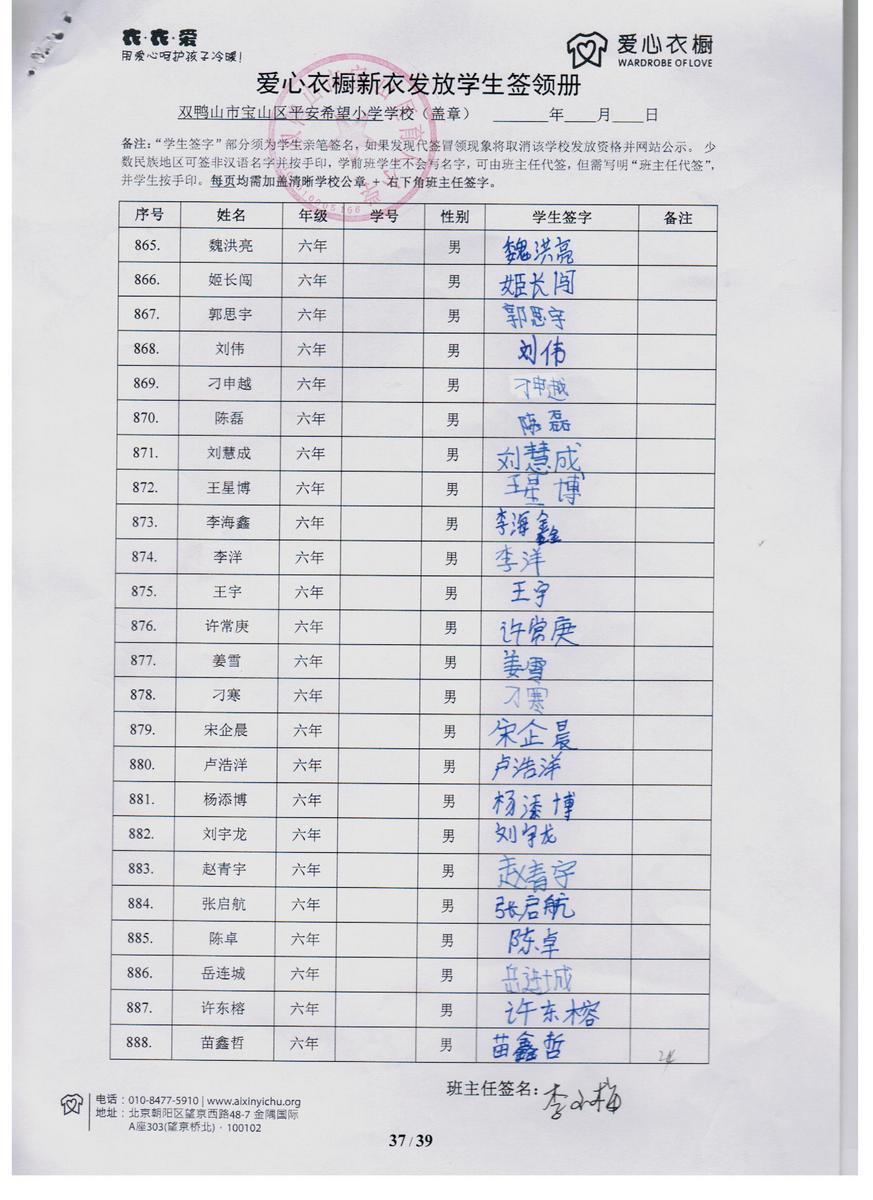 衣·衣·爱
用爱心呵护孩子冷暖!
爱心衣橱
WARDROBE OF LOVE
爱心衣橱新衣发放学生签领册
双鸭山市宝山区平安希望小学学校（盖章） ______年____月____日
备注：“学生签字”部分须为学生亲笔签名，如果发现代签冒领现象将取消该学校发放资格并网站公示。 少
数民族地区可签非汉语名字并按手印，学前班学生不会写名字，可由班主任代签，但需写明“班主任代签”，
并学生按手印。每页均需加盖清晰学校公章 + 右下角班主任签字。
序号 姓名 年级 学号 性别 学生签字 备注
865. 魏洪亮 六年 男 魏洪亮
866. 姬长闯 六年 男 姬长闯
867. 郭思宇 六年 男 郭思宇
868. 刘伟 六年 男 刘伟
869. 刁申越 六年 男 刁申越
870. 陈磊 六年 男 陈磊
871. 刘慧成 六年 男 刘慧成
872. 王星博 六年 男 王星博
873. 李海鑫 六年 男 李海鑫
874. 李洋 六年 男 李洋
875. 王宇 六年 男 王宇
876. 许常庚 六年 男 许常庚
877. 姜雪 六年 男 姜雪
878. 刁寒 六年 男 刁寒
879. 宋企晨 六年 男 宋企晨
880. 卢浩洋 六年 男 卢浩洋
881. 杨添博 六年 男 杨添博
882. 刘宇龙 六年 男 刘宇龙
883. 赵青宇 六年 男 赵青宇
884. 张启航 六年 男 张启航
885. 陈卓 六年 男 陈卓
886. 岳连城 六年 男 岳连城
887. 许东榕 六年 男 许东榕
888. 苗鑫哲 六年 男 苗鑫哲
班主任签名：
电话：010-8477-5910 | www.aixinyichu.org
地址：北京朝阳区望京西路48-7 金隅国际
A座303(望京桥北)·100102
37 / 39